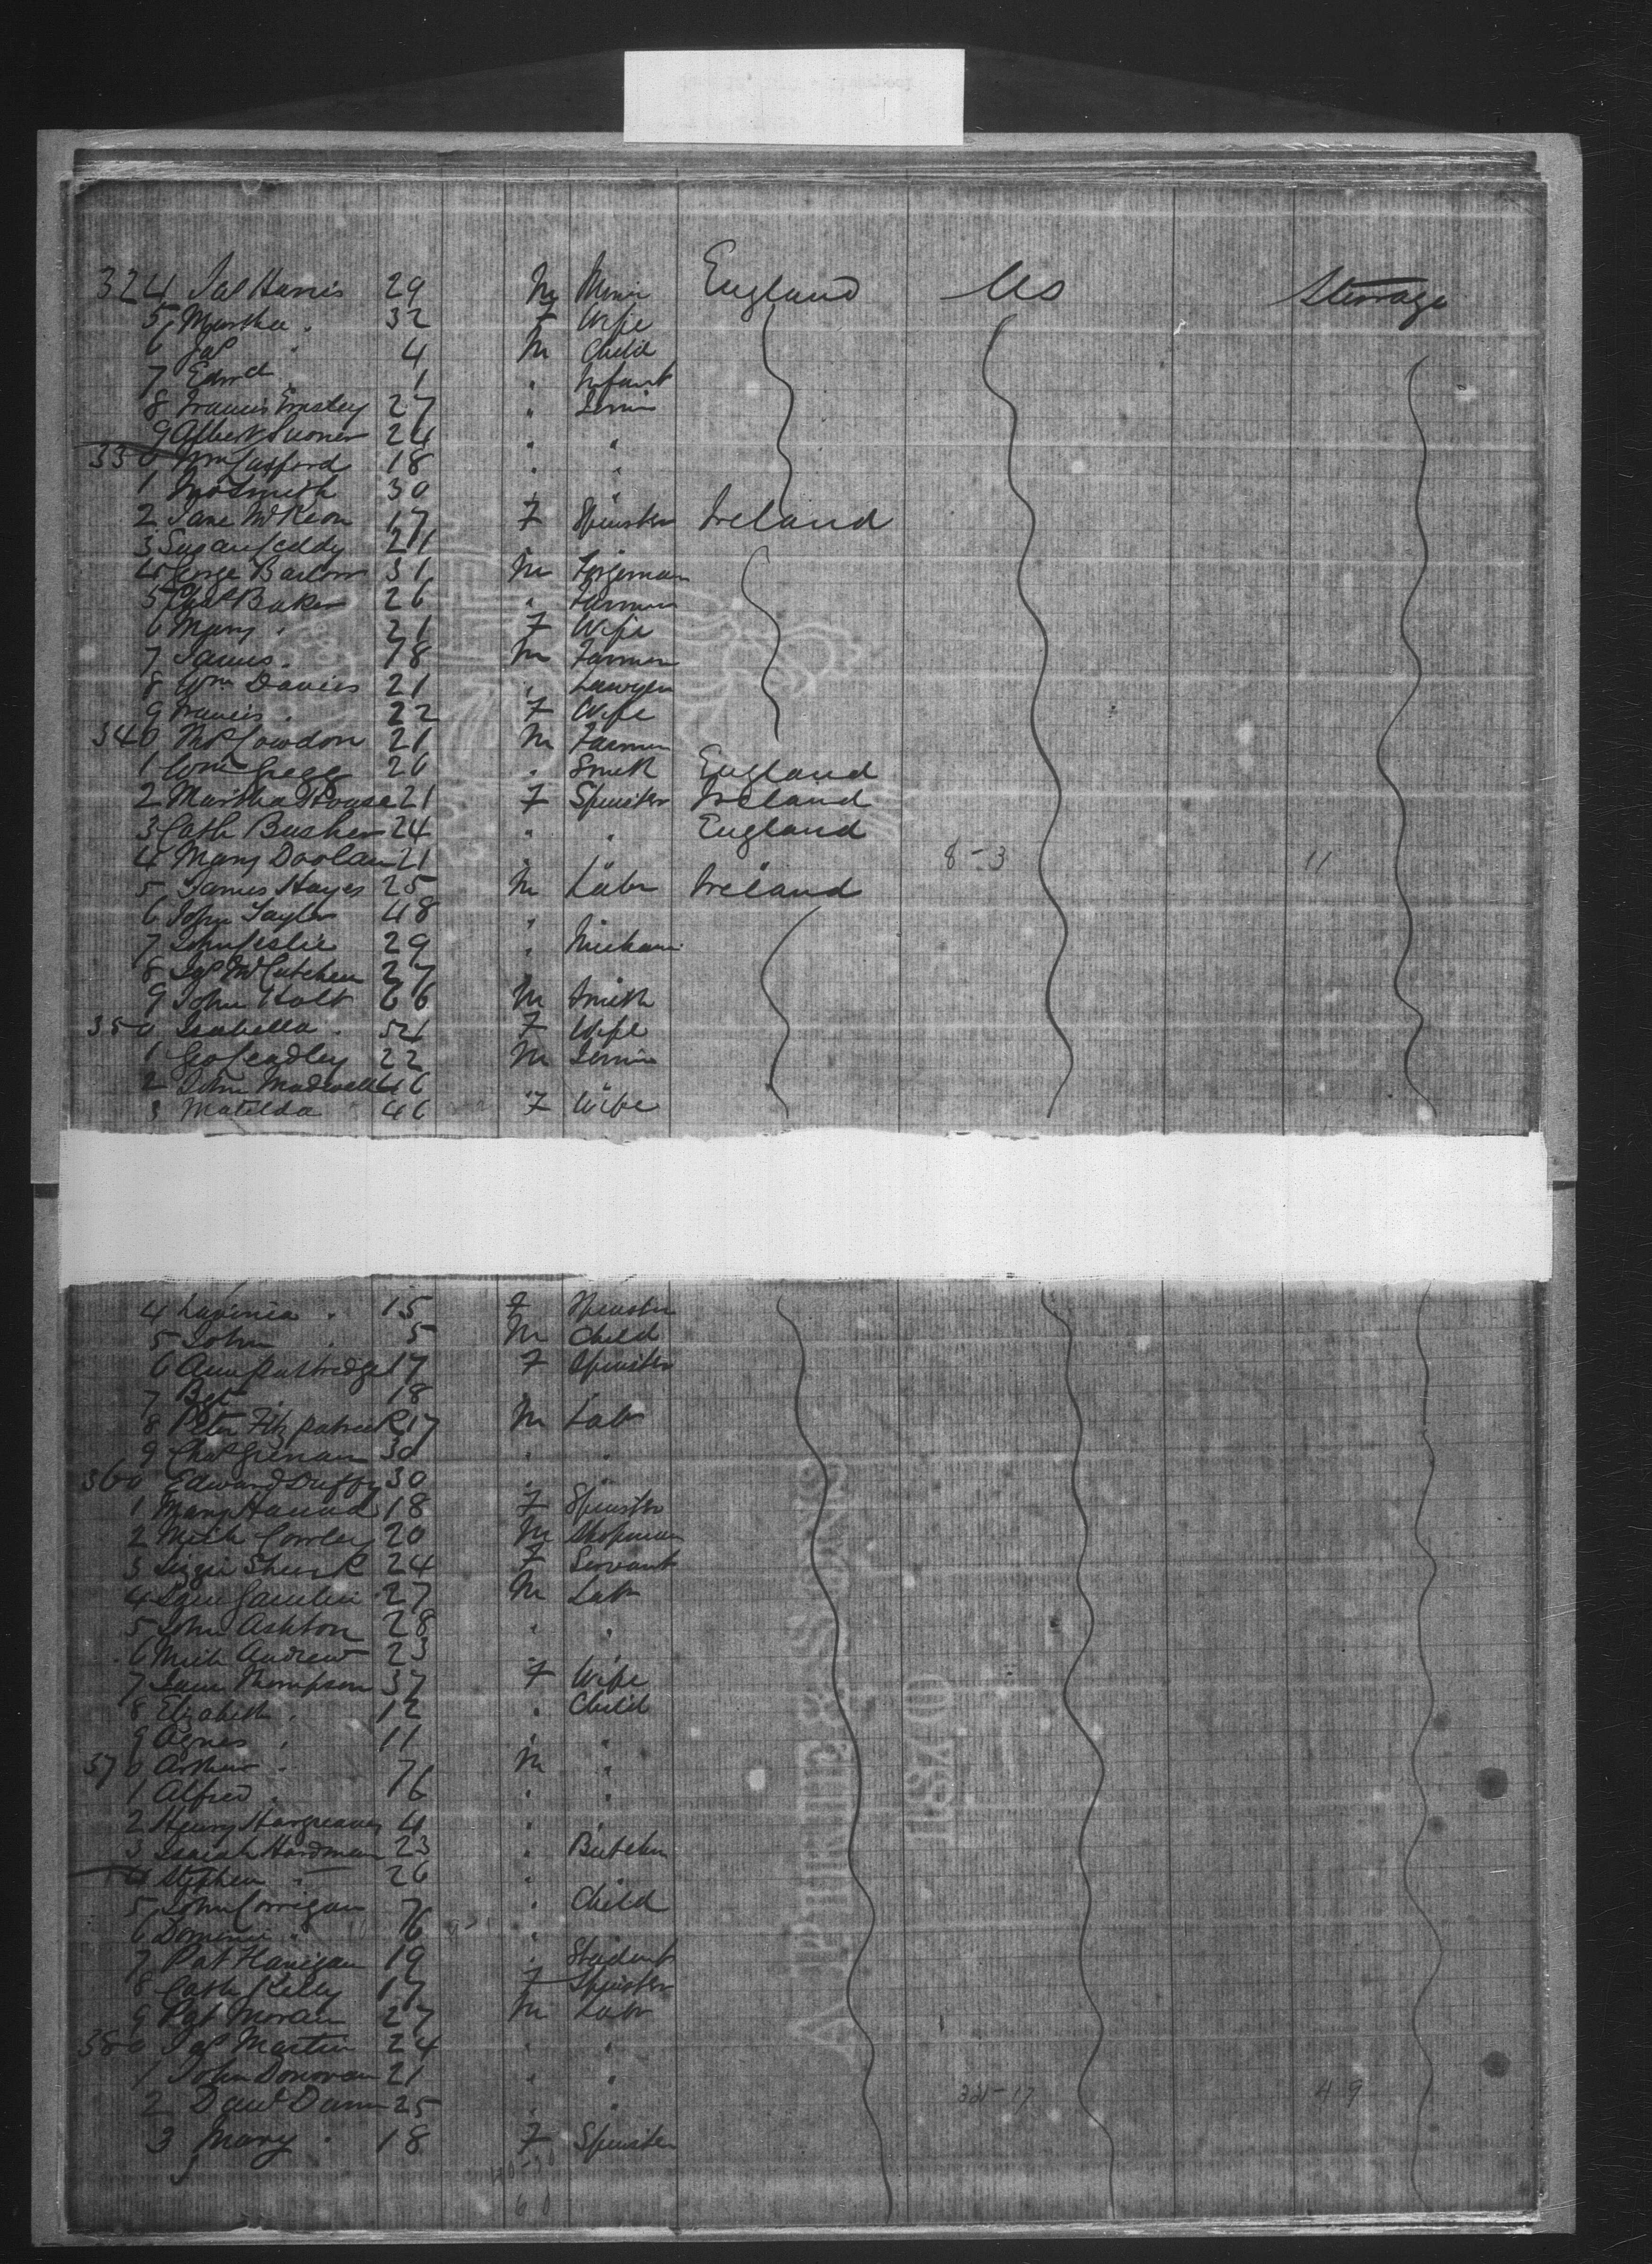 324 Jas Harris 29 M Miner England US Steerage
5 Martha . 32 F Wife
6 Jas " 4 M Child
7 Edwd 1 " Infant
8 Francis Emsley 27 "
9 Albert 24 " "
330 Wm Caxford 18 " "
1 Smith 30 "
2 Jane McKeon 17 F Spinster Ireland
3 Susan Leddy 21
4 George Barlow 31 M Forgeman
5 Chas Baker 26 " Farmer
6 Mary . 21 F Wife
7 James . 18 M Farmer
8 Wm Davies 21 " Lawyer
9 Francis . 22 F Wife
340 Thos Cowdon 21 M Farmer
1 Wm Gregg 26 " Smith England
2 Martha House 21 F Spinster Ireland
3 Cath Busher 24 " " England
4 Mary Doolan 21 " 8-3 11
5 James Hayes 25 M Labr Ireland
6 John Taylor 48 "
7 John Leslie 29 "
8 Jas McCutchen 27
9 John Holt 66 M Smith
350 Isabella . 54 F Wife
1 Geo Leadley 22 M
2 John 46
3 Matilda 46 F Wife
4 Lavinia . 15 F Spinster
5 John . 5 M Child
6 Ann Partridge 17 F Spinster
7 18
8 Peter Fitzpatrick 17 M Labr
9 Chas 30 " "
360 Edward Duffy 30 "
1 Mary 18 F Spinster
2 Mich Cowley 20 M Shopman
3 Lizzie 24 F Servant
4 27 M Labr
5 John Ashton 28 " "
6 Mich Andrew 23 " "
7 Thompson 37 F Wife
8 Elizabeth . 12 " Child
9 Agnes . 11 " "
370 Arthur . 7 M "
1 Alfred . 6 " "
2 Henry Hargreaves 4 " "
3 Isaiah Hardman 23 " Butcher
4 Stephen " 26 "
5 John Corrigan 7 " Child
6 " 6 "
7 Pat Hanigan 19 " Student
8 Cath Kelly 17 F Spinster
9 Pat Moran 27 M Labr
380 Jas Martin 24 " "
1 John Donovan 21 " "
2 Davd Dann 25 " " 49
3 Mary . 18 F Spinster
60